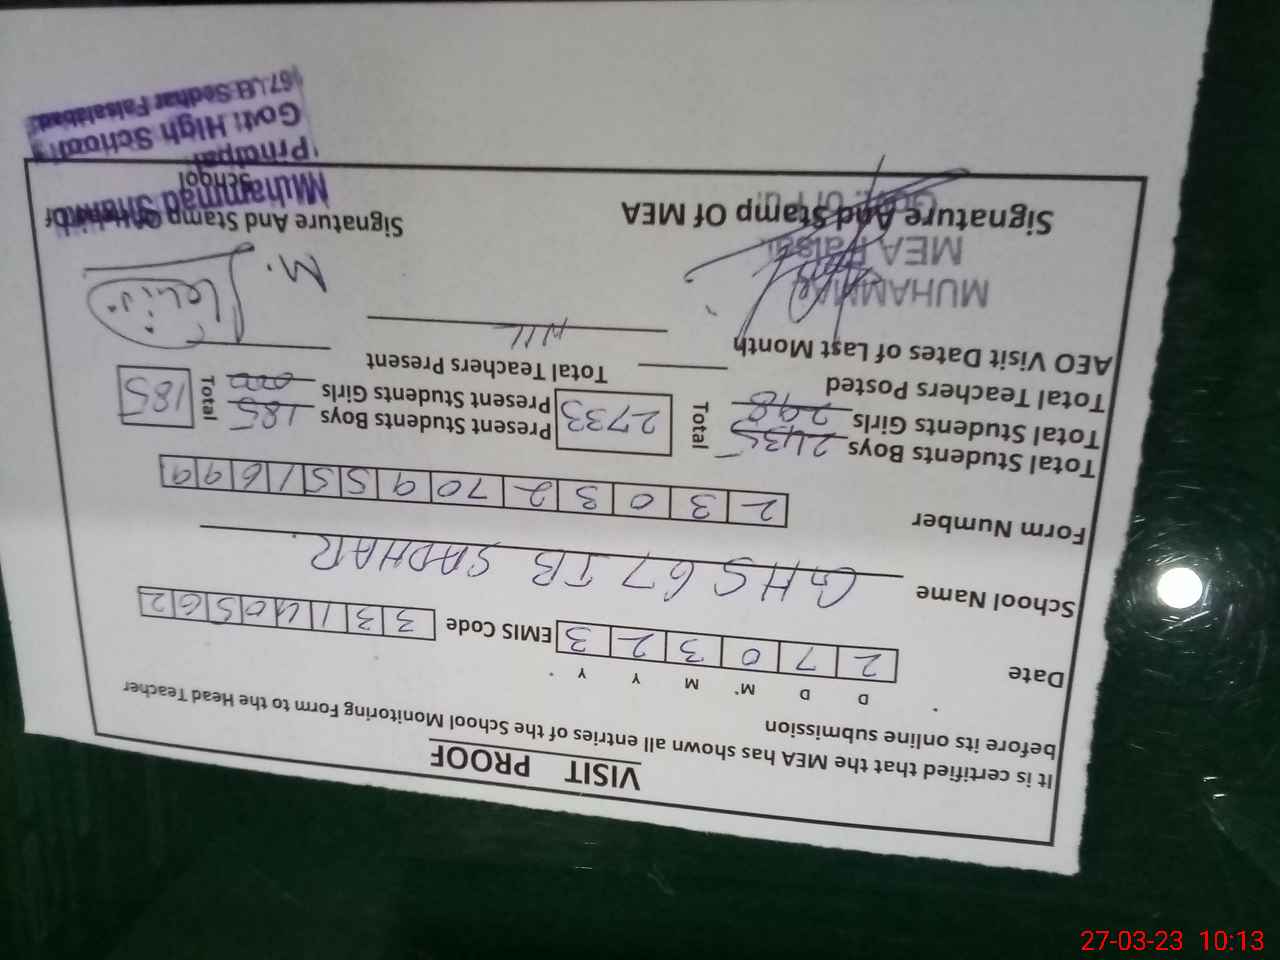 VISIT PROOF
It is certified that the MEA has shown all entries of the School Monitoring Form to the Head Teacher
before its online submission
D D M M Y Y
Date 2 7 0 3 2 3 EMIS Code 3 3 1 4 0 5 6 2
School Name GHS 67 JB SADHAR
Form Number 2 3 0 3 2 7 0 9 5 5 1 6 9 9
Total Students Boys 2435 Total 2733 Present Students Boys 185 Total 185
Total Students Girls 298 Present Students Girls 000
Total Teachers Posted Total Teachers Present
AEO Visit Dates of Last Month NIL
MUHAMMAD
MEA
M.
Signature And Stamp Of MEA Signature And Stamp Of
School
Muhammad
Principal
Govt: High School
67 J.B Sadhar Faisalabad
27-03-23 10:13